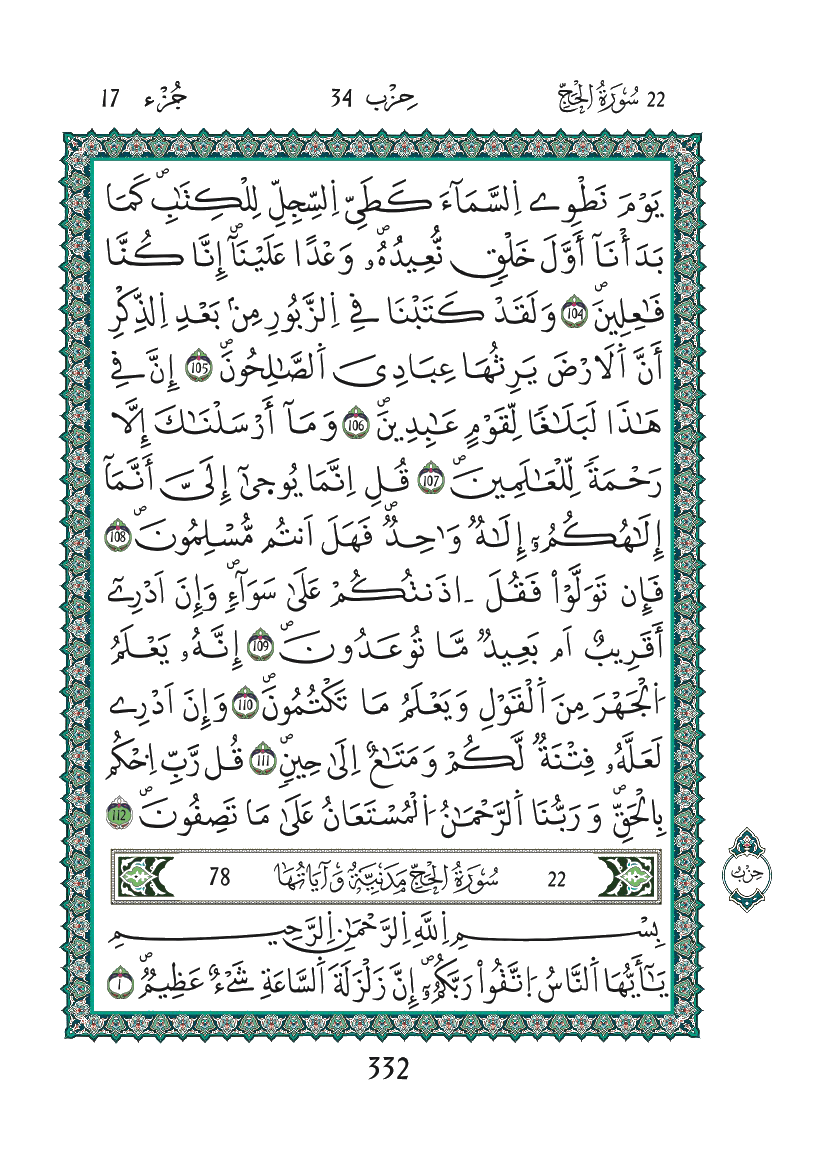 22 سُورَةُ الْحَجِّ حِزْب 34 جُزْء 17
يَوْمَ نَطْوِے اِ۬لسَّمَآءَ كَطَيِّ اِ۬لسِّجِلِّ لِلْكِتَٰبِۖ كَمَا
بَدَأْنَآ أَوَّلَ خَلْقٖ نُّعِيدُهُۥۖ وَعْدًا عَلَيْنَآۖ إِنَّا كُنَّا
فَٰعِلِينَۖ 104 وَلَقَدْ كَتَبْنَا فِے اِ۬لزَّبُورِ مِنۢ بَعْدِ اِ۬لذِّكْرِ
أَنَّ اَ۬لَارْضَ يَرِثُهَا عِبَادِيَ اَ۬لصَّٰلِحُونَۖ 105 إِنَّ فِے
هَٰذَا لَبَلَٰغًا لِّقَوْمٍ عَٰبِدِينَۖ 106 وَمَآ أَرْسَلْنَٰكَ إِلَّا
رَحْمَةً لِّلْعَٰلَمِينَۖ 107 قُلِ اِنَّمَا يُوح۪ىٰٓ إِلَيَّ أَنَّمَآ
إِلَٰهُكُمُۥٓ إِلَٰهٞ وَٰحِدٞۖ فَهَلَ اَنتُم مُّسْلِمُونَۖ 108
فَإِن تَوَلَّوْاْ فَقُلَ ـ اذَنتُكُمْ عَلَىٰ سَوَآءٖۖ وَإِنَ اَدْرِےٓ
أَقَرِيبٌ اَم بَعِيدٞ مَّا تُوعَدُونَۖ 109 إِنَّهُۥ يَعْلَمُ
اُ۬لْجَهْرَ مِنَ اَ۬لْقَوْلِ وَيَعْلَمُ مَا تَكْتُمُونَۖ 110 وَإِنَ اَدْرِے
لَعَلَّهُۥ فِتْنَةٞ لَّكُمْ وَمَتَٰعٌ اِلَىٰ حِينٖۖ 111 قُل رَّبِّ اِ۟حْكُم
بِالْحَقِّۖ وَرَبُّنَا اَ۬لرَّحْمَٰنُ اُ۬لْمُسْتَعَانُ عَلَىٰ مَا تَصِفُونَۖ 112
22 سُورَةُ الْحَجِّ مَدَنِيَّةٌ وَآيَاتُهَا 78
حِزْبٌ
بِسْمِ اِ۬للَّهِ اِ۬لرَّحْمَٰنِ اِ۬لرَّحِيمِ
يَٰٓأَيُّهَا اَ۬لنَّاسُ اُ۪تَّقُواْ رَبَّكُمُۥٓۖ إِنَّ زَلْزَلَةَ اَ۬لسَّاعَةِ شَےْءٌ عَظِيمٞۖ 1
332